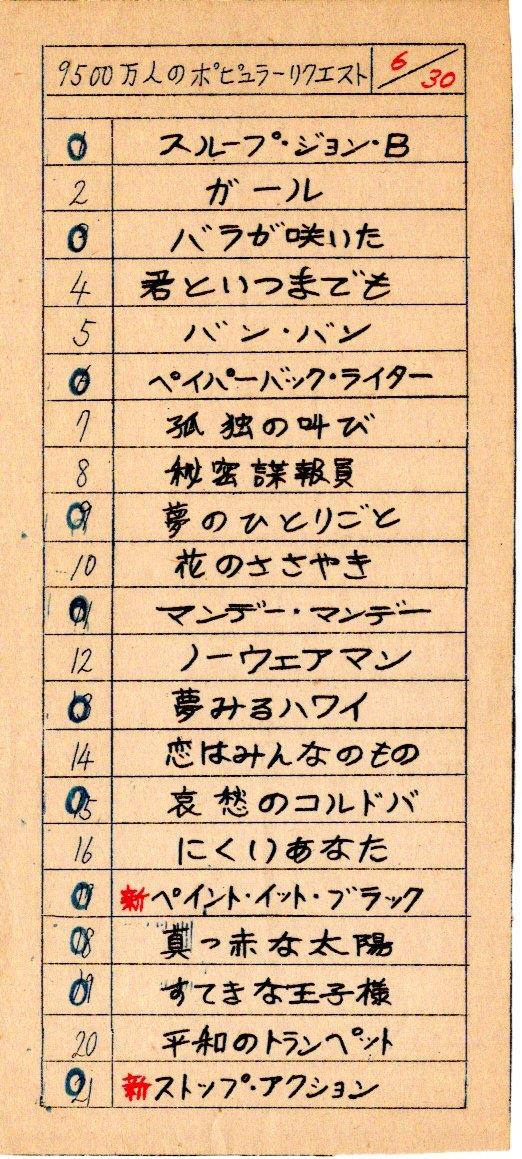 9500万人のポピュラーリクエスト 6/30
1 スループ・ジョン・B
2 ガール
3 バラが咲いた
4 君といつまでも
5 バン・バン
6 ペイパーバック・ライター
7 孤独の叫び
8 秘密諜報員
9 夢のひとりごと
10 花のささやき
11 マンデー・マンデー
12 ノーウェアマン
13 夢みるハワイ
14 恋はみんなのもの
15 哀愁のコルドバ
16 にくいあなた
17 新ペイント・イット・ブラック
18 真っ赤な太陽
19 すてきな王子様
20 平和のトランペット
21 新ストップ・アクション